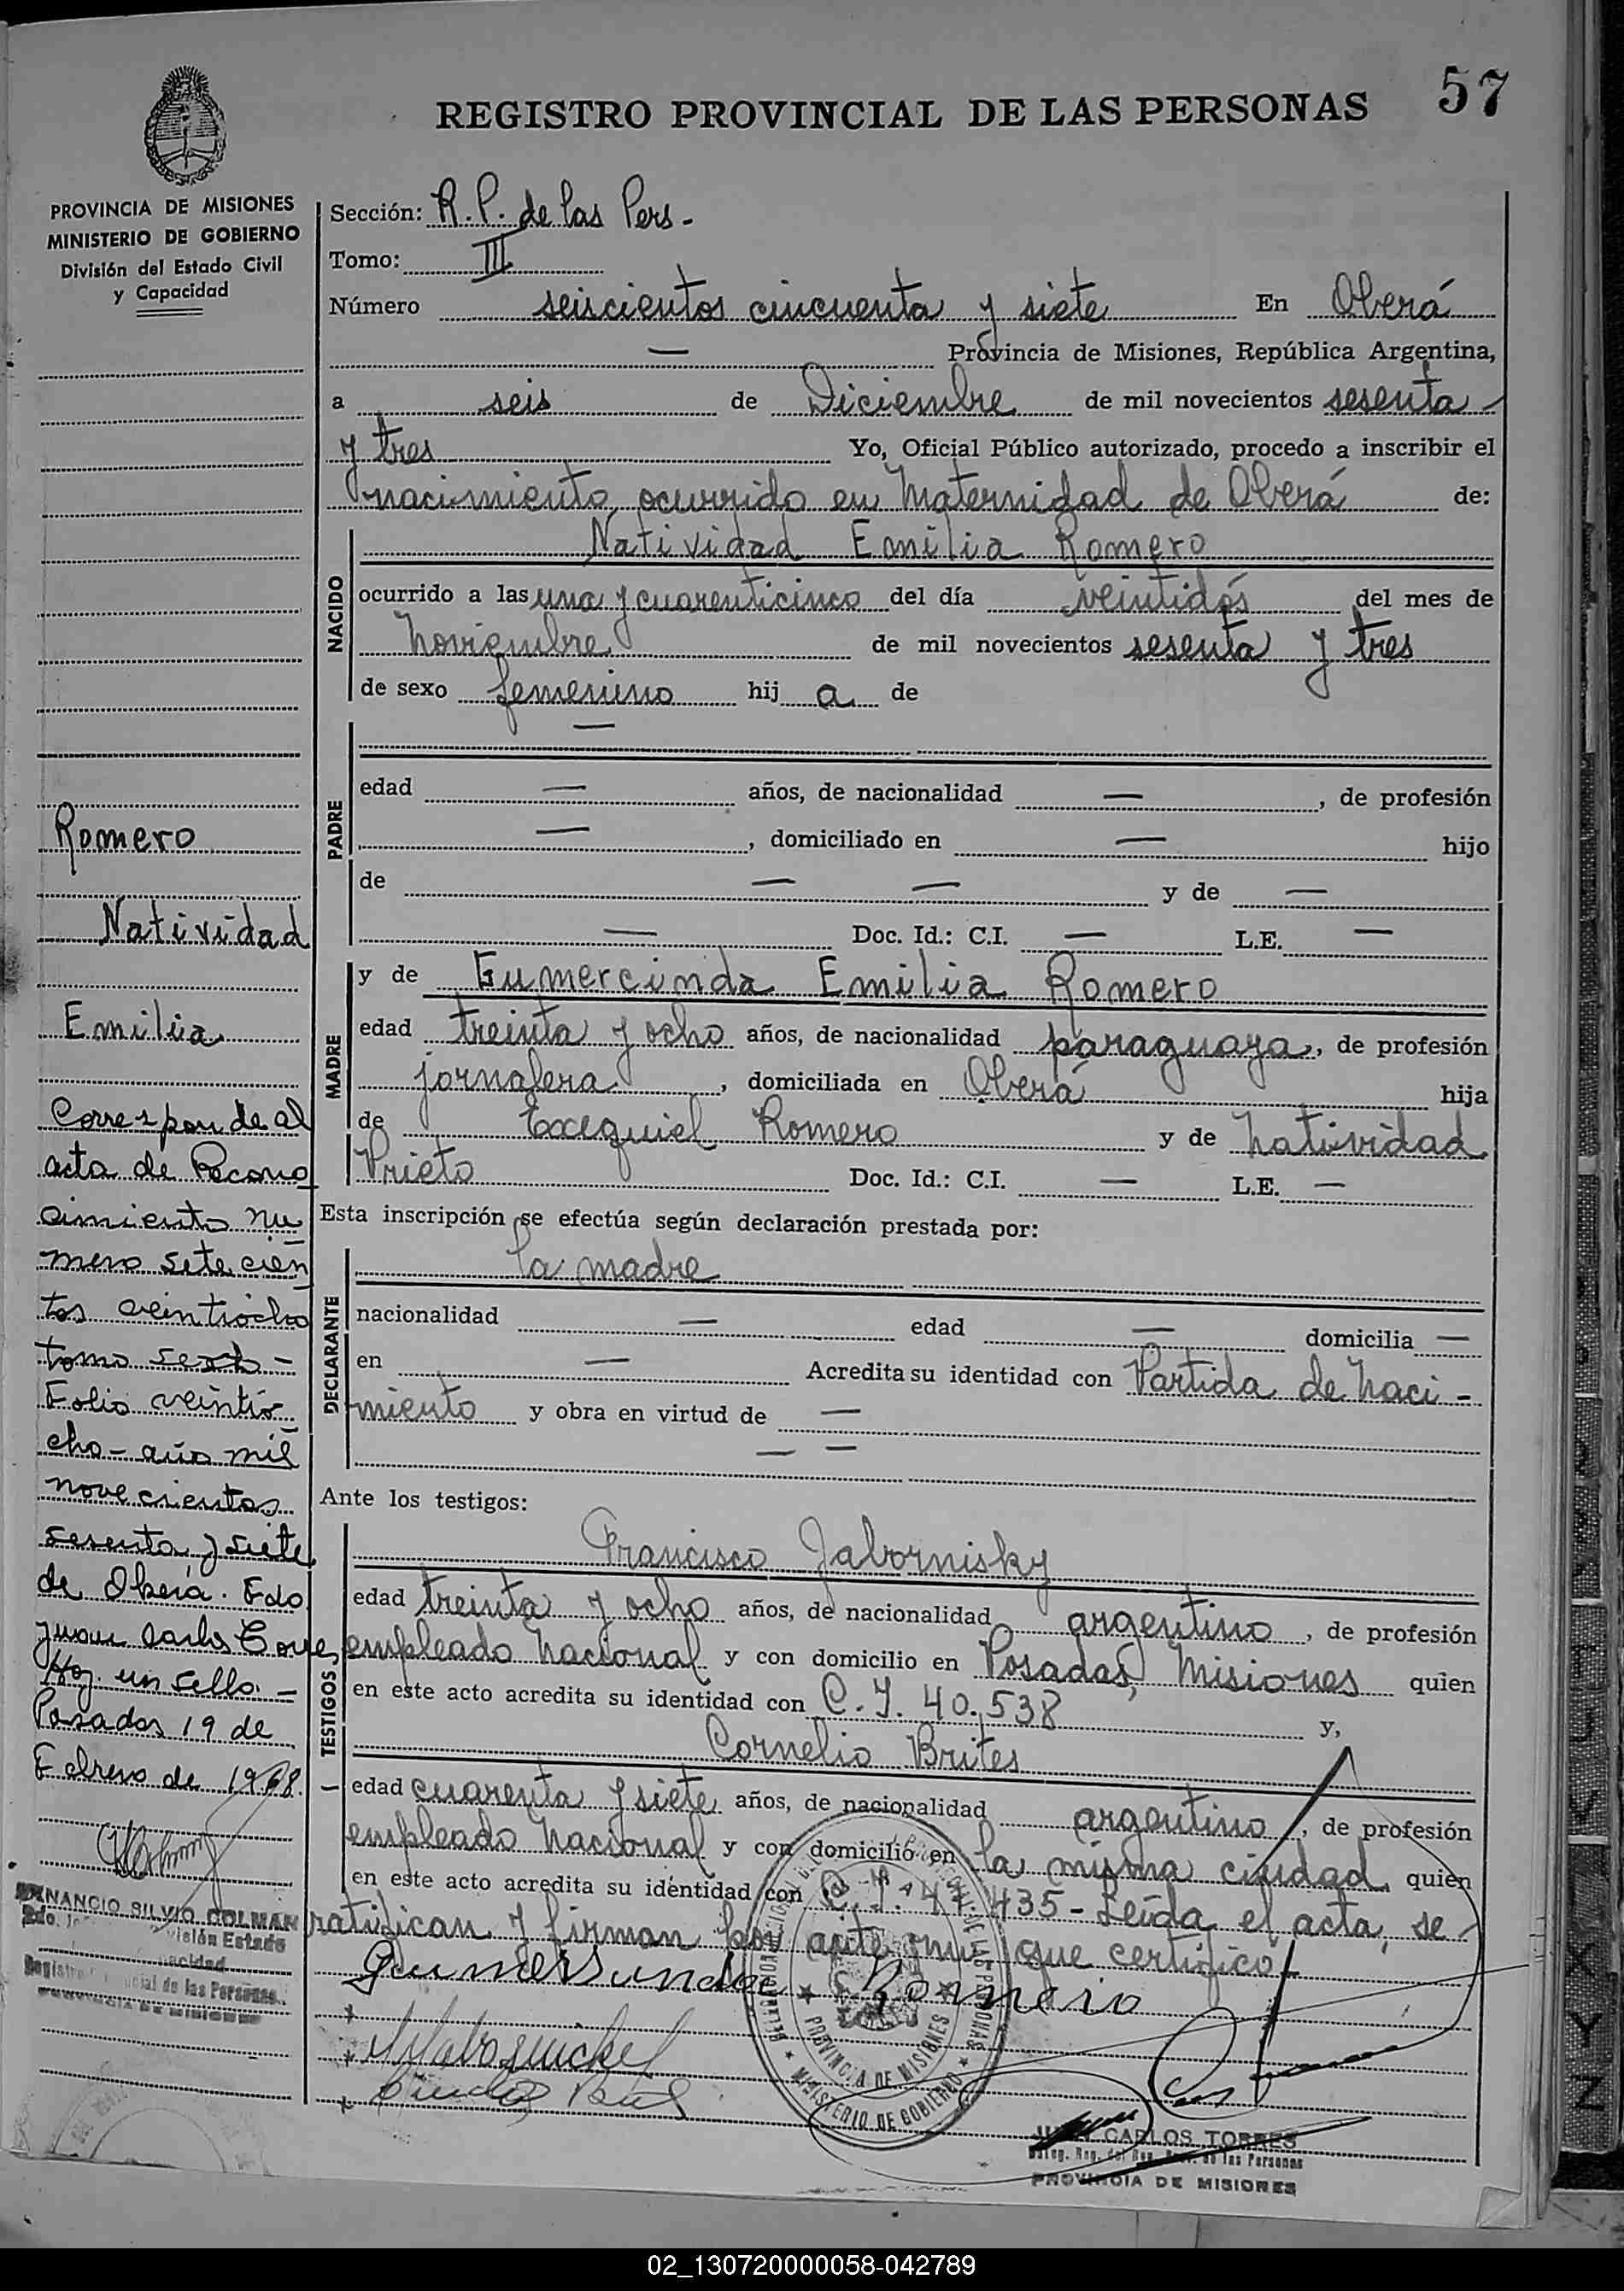 57
REGISTRO PROVINCIAL DE LAS PERSONAS
PROVINCIA DE MISIONES
MINISTERIO DE GOBIERNO
División del Estado Civil
y Capacidad
Romero
Natividad
Emilia
Corresponde al
acta de Recono
cimiento nu
mero setecien
tos veintiocho
tomo sexto -
Folio veintio
cho - año mil
novecientos
sesenta y siete
de Oberá. Fdo
Juan Carlos Torres
Hay un sello. -
Posadas 19 de
Febrero de 1968.
SILVIO COLMAN
Estado
de las Personas
Sección: R.P. de las Pers -
Tomo: III
Número seiscientos cincuenta y siete En Oberá
— Provincia de Misiones, República Argentina,
a seis de Diciembre de mil novecientos sesenta -
y tres Yo, Oficial Público autorizado, procedo a inscribir el
nacimiento ocurrido en Maternidad de Oberá de:
NACIDO
Natividad Emilia Romero
ocurrido a las una y cuarenticinco del día veintidós del mes de
Noviembre de mil novecientos sesenta y tres
de sexo femenino hij a de
PADRE
—
edad — años, de nacionalidad — , de profesión
— , domiciliado en — hijo
de — — y de —
— Doc. Id.: C.I. — L.E. —
MADRE
y de Gumercinda Emilia Romero
edad treinta y ocho años, de nacionalidad paraguaya, de profesión
jornalera , domiciliada en Oberá hija
de Exequiel Romero y de Natividad
Prieto Doc. Id.: C.I. — L.E. —
Esta inscripción se efectúa según declaración prestada por:
DECLARANTE
la madre
nacionalidad — edad — domicilia —
en — Acredita su identidad con Partida de Naci -
miento y obra en virtud de —
— —
Ante los testigos:
TESTIGOS
Francisco Jabornisky
edad treinta y ocho años, de nacionalidad argentino , de profesión
empleado Nacional y con domicilio en Posadas, Misiones quien
en este acto acredita su identidad con C.I. 40.538 y,
Cornelio Brites
edad cuarenta y siete años, de nacionalidad argentino , de profesión
empleado Nacional y con domicilio en la misma ciudad quien
en este acto acredita su identidad con C.I. 435 - Leída el acta, se
ratifican y firman por ante mí que certifico -
Gumersinda Romero
PROVINCIA DE MISIONES
MINISTERIO DE GOBIERNO
CARLOS TORRES
de las Personas
PROVINCIA DE MISIONES
02_130720000058-042789